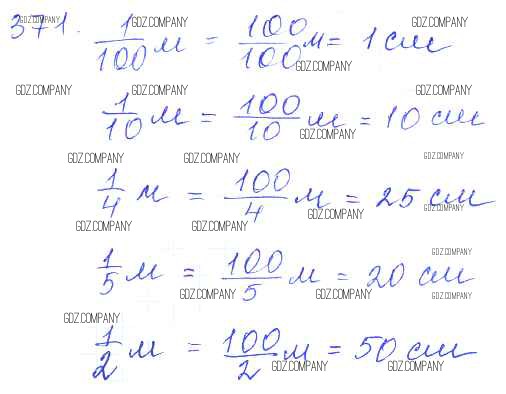 371. 1/100 м = 100/100 м = 1 см
1/10 м = 100/10 м = 10 см
1/4 м = 100/4 м = 25 см
1/5 м = 100/5 м = 20 см
1/2 м = 100/2 м = 50 см
GDZ.COMPANY GDZ.COMPANY GDZ.COMPANY
GDZ.COMPANY
GDZ.COMPANY GDZ.COMPANY GDZ.COMPANY
GDZ.COMPANY
GDZ.COMPANY GDZ.COMPANY GDZ.COMPANY
GDZ.COMPANY GDZ.COMPANY
GDZ.COMPANY GDZ.COMPANY
GDZ.COMPANY
GDZ.COMPANY GDZ.COMPANY GDZ.COMPANY
GDZ.COMPANY
GDZ.COMPANY GDZ.COMPANY